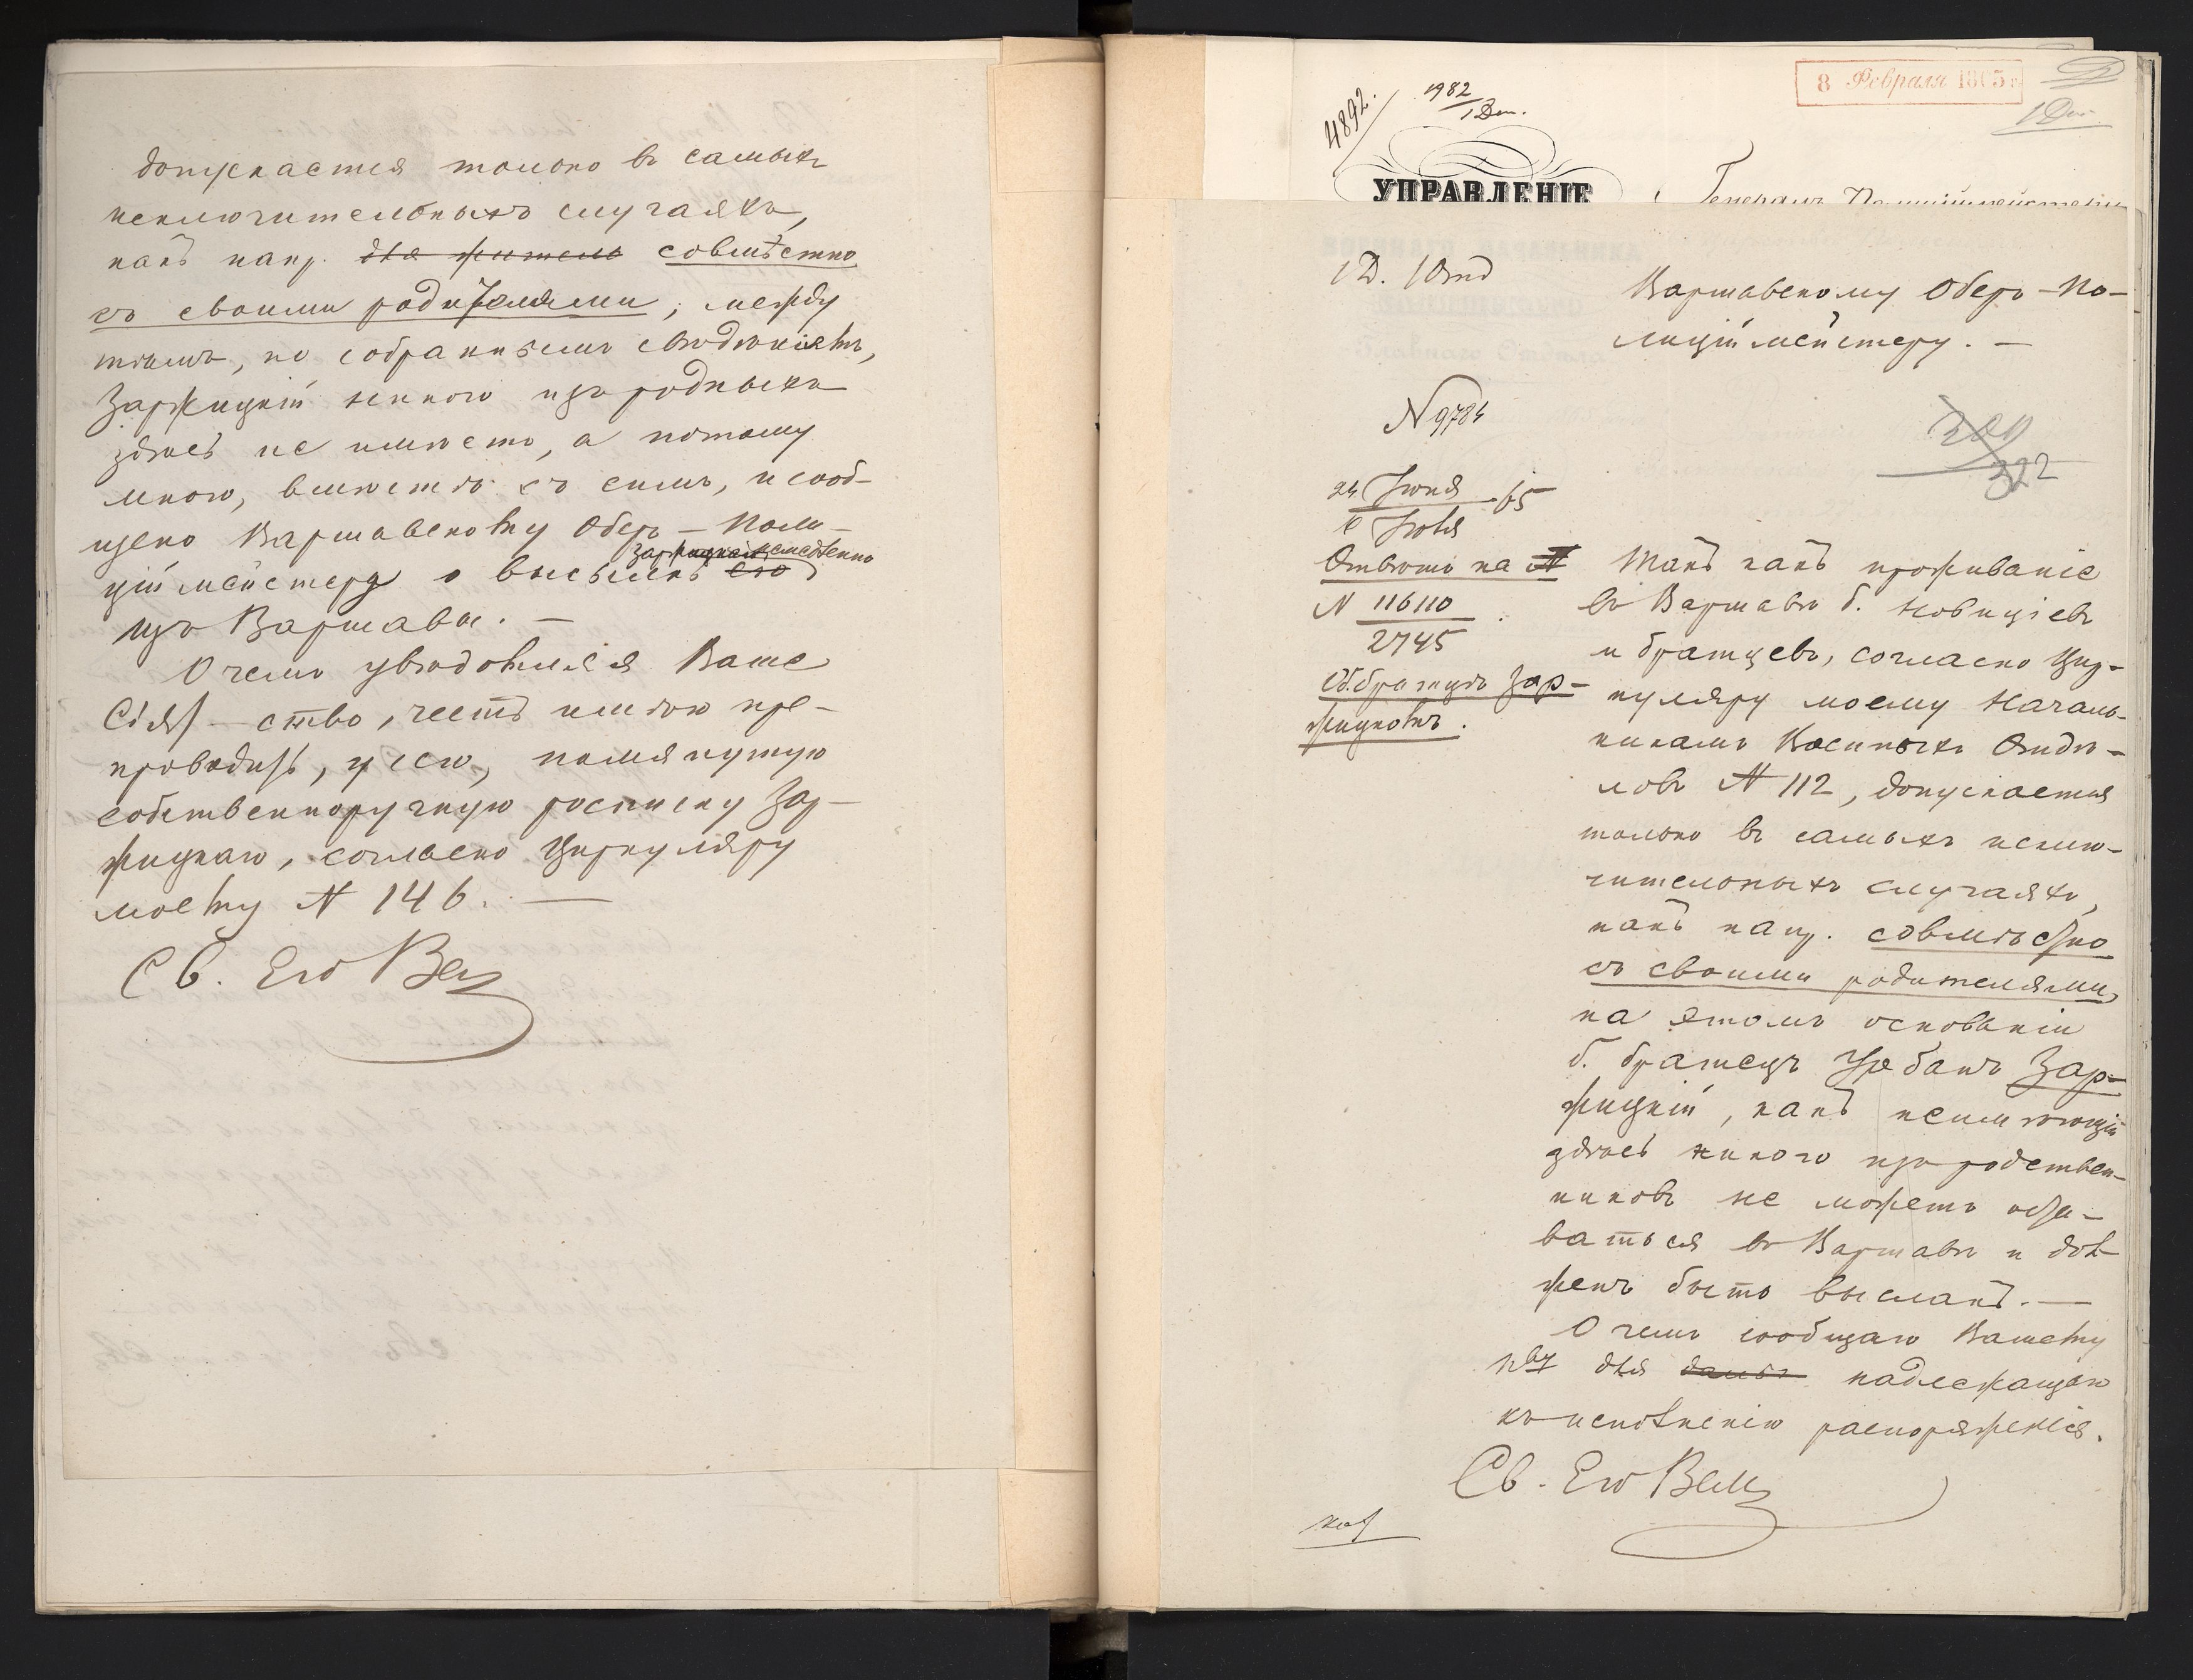 допускается только въ самыхъ
исключительныхъ случаяхъ,
какъ напр. для жительс совмѣстно
съ своими родителями; между
тѣмъ, по собраннымъ свѣдѣніямъ,
Заржицкій никого изъ родныхъ
здѣсь не имѣетъ, а потому
мною, вмѣстѣ съ симъ, и сооб-
щено Варшавскому Оберъ-Поли-
ційместеру о высылкѣ его
Заржицкаго немедленно
изъ Варшавы. —
О чемъ увѣдомляя Ваше
Сіят-ство, честь имѣю пре-
проводить, у сего, помянутую
собственноручную росписку Зар-
жицкаго, согласно Циркуляру
моему N 146. —
Св. Его Вел
4892.
1982
1 Отд.
8 Февраля 1865 г.
УПРАВЛЕНІЕ
Генералъ Полиціймейстеру
1 О. 1 Отд
Варшавскому Оберъ-По-
лиціймейстеру. —
N 9784
300
322
24 Іюня
6 Іюля 65
Отвѣтъ на N
N 116110
2745
Об. братцѣ Зар-
жицкомъ.
Такъ какъ проживаніе
въ Варшавѣ б. новиціевъ
и братцевъ, согласно Цир-
куляру моему Началь-
никамъ Военныхъ Отдѣ-
ловъ N 112, допускается
только въ самыхъ исклю-
чительныхъ случаяхъ,
какъ напр. совмѣстно
съ своими родителями,
на этомъ основаніи
б. братецъ Урбанъ Зар-
жицкій, какъ неимѣющій
здѣсь никого изъ родствен-
никовъ не можетъ оста-
ваться въ Варшавѣ и дол-
женъ быть высланъ. —
О чемъ сообщаю Вашему
Пву для надлежащаго
къ исполненію распоряженія.
Св. Его Вел